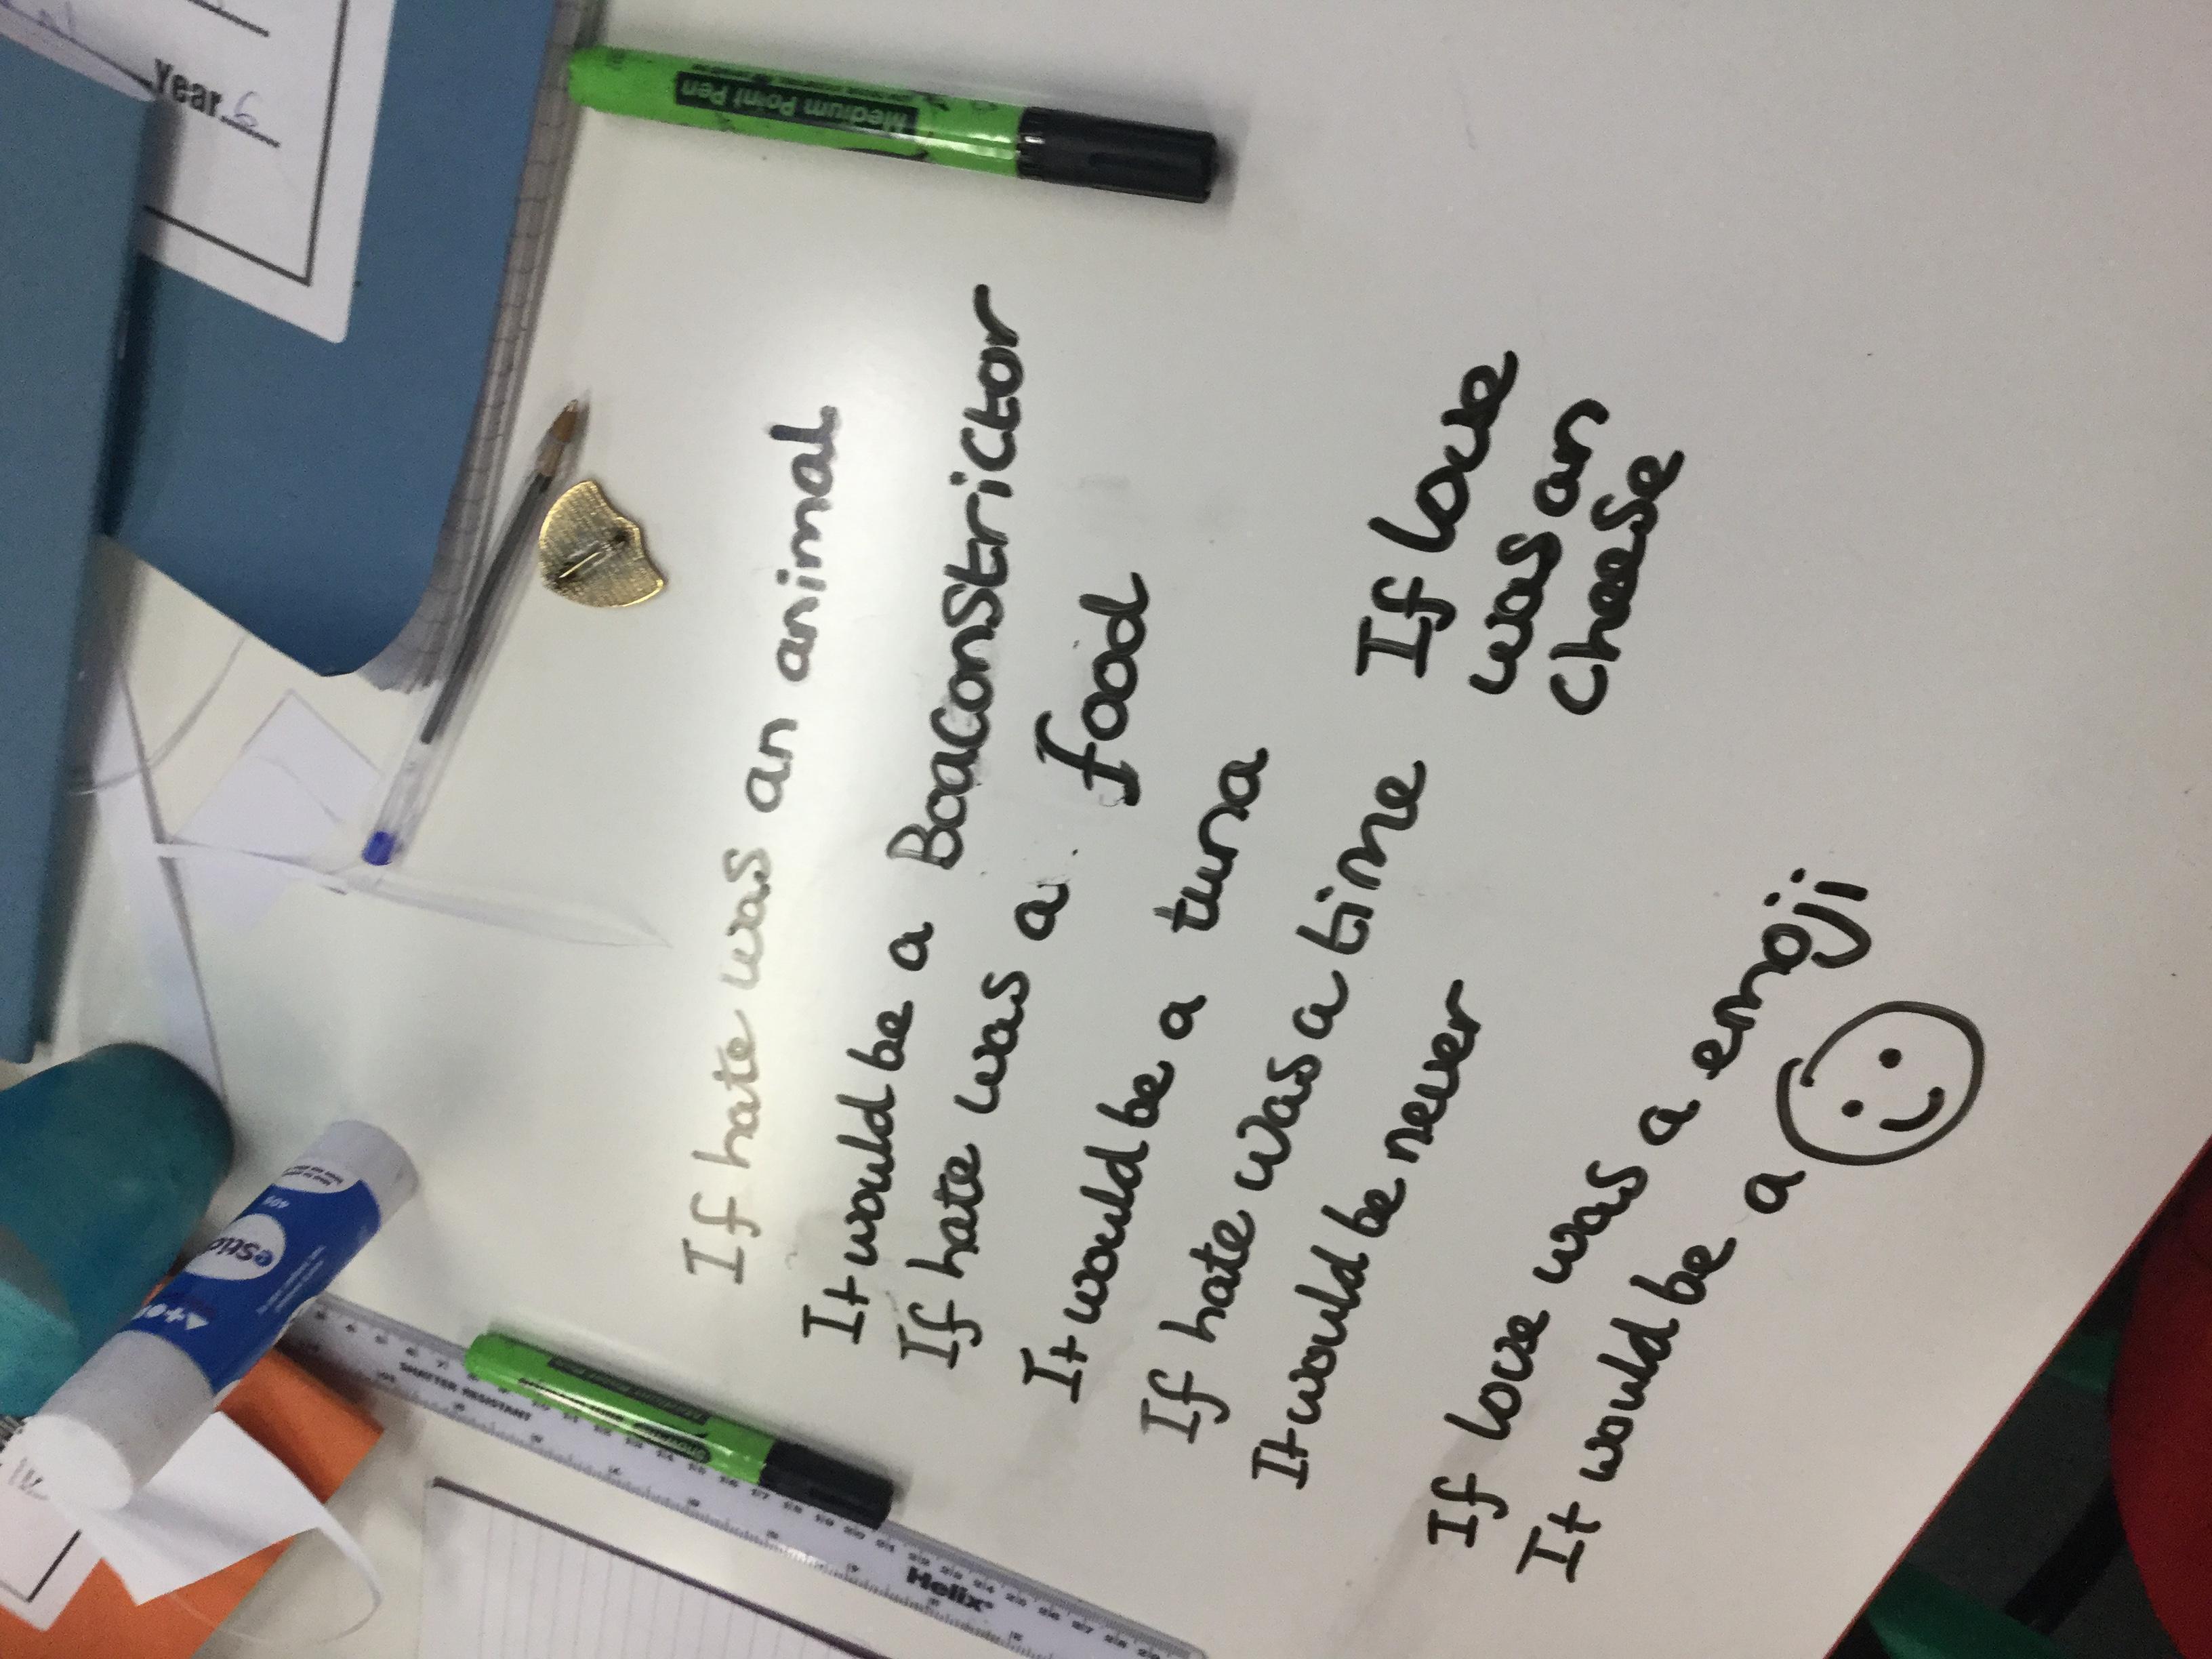 If hate was an animal
It would be a Boaconstrictor
If hate was a food
It would be a tuna
If hate was a time
It would be never
If love
was an
cheese
If love was a emoji
It would be a
Year 6
Medium Point Pen
SHATTER RESISTANT
Helix